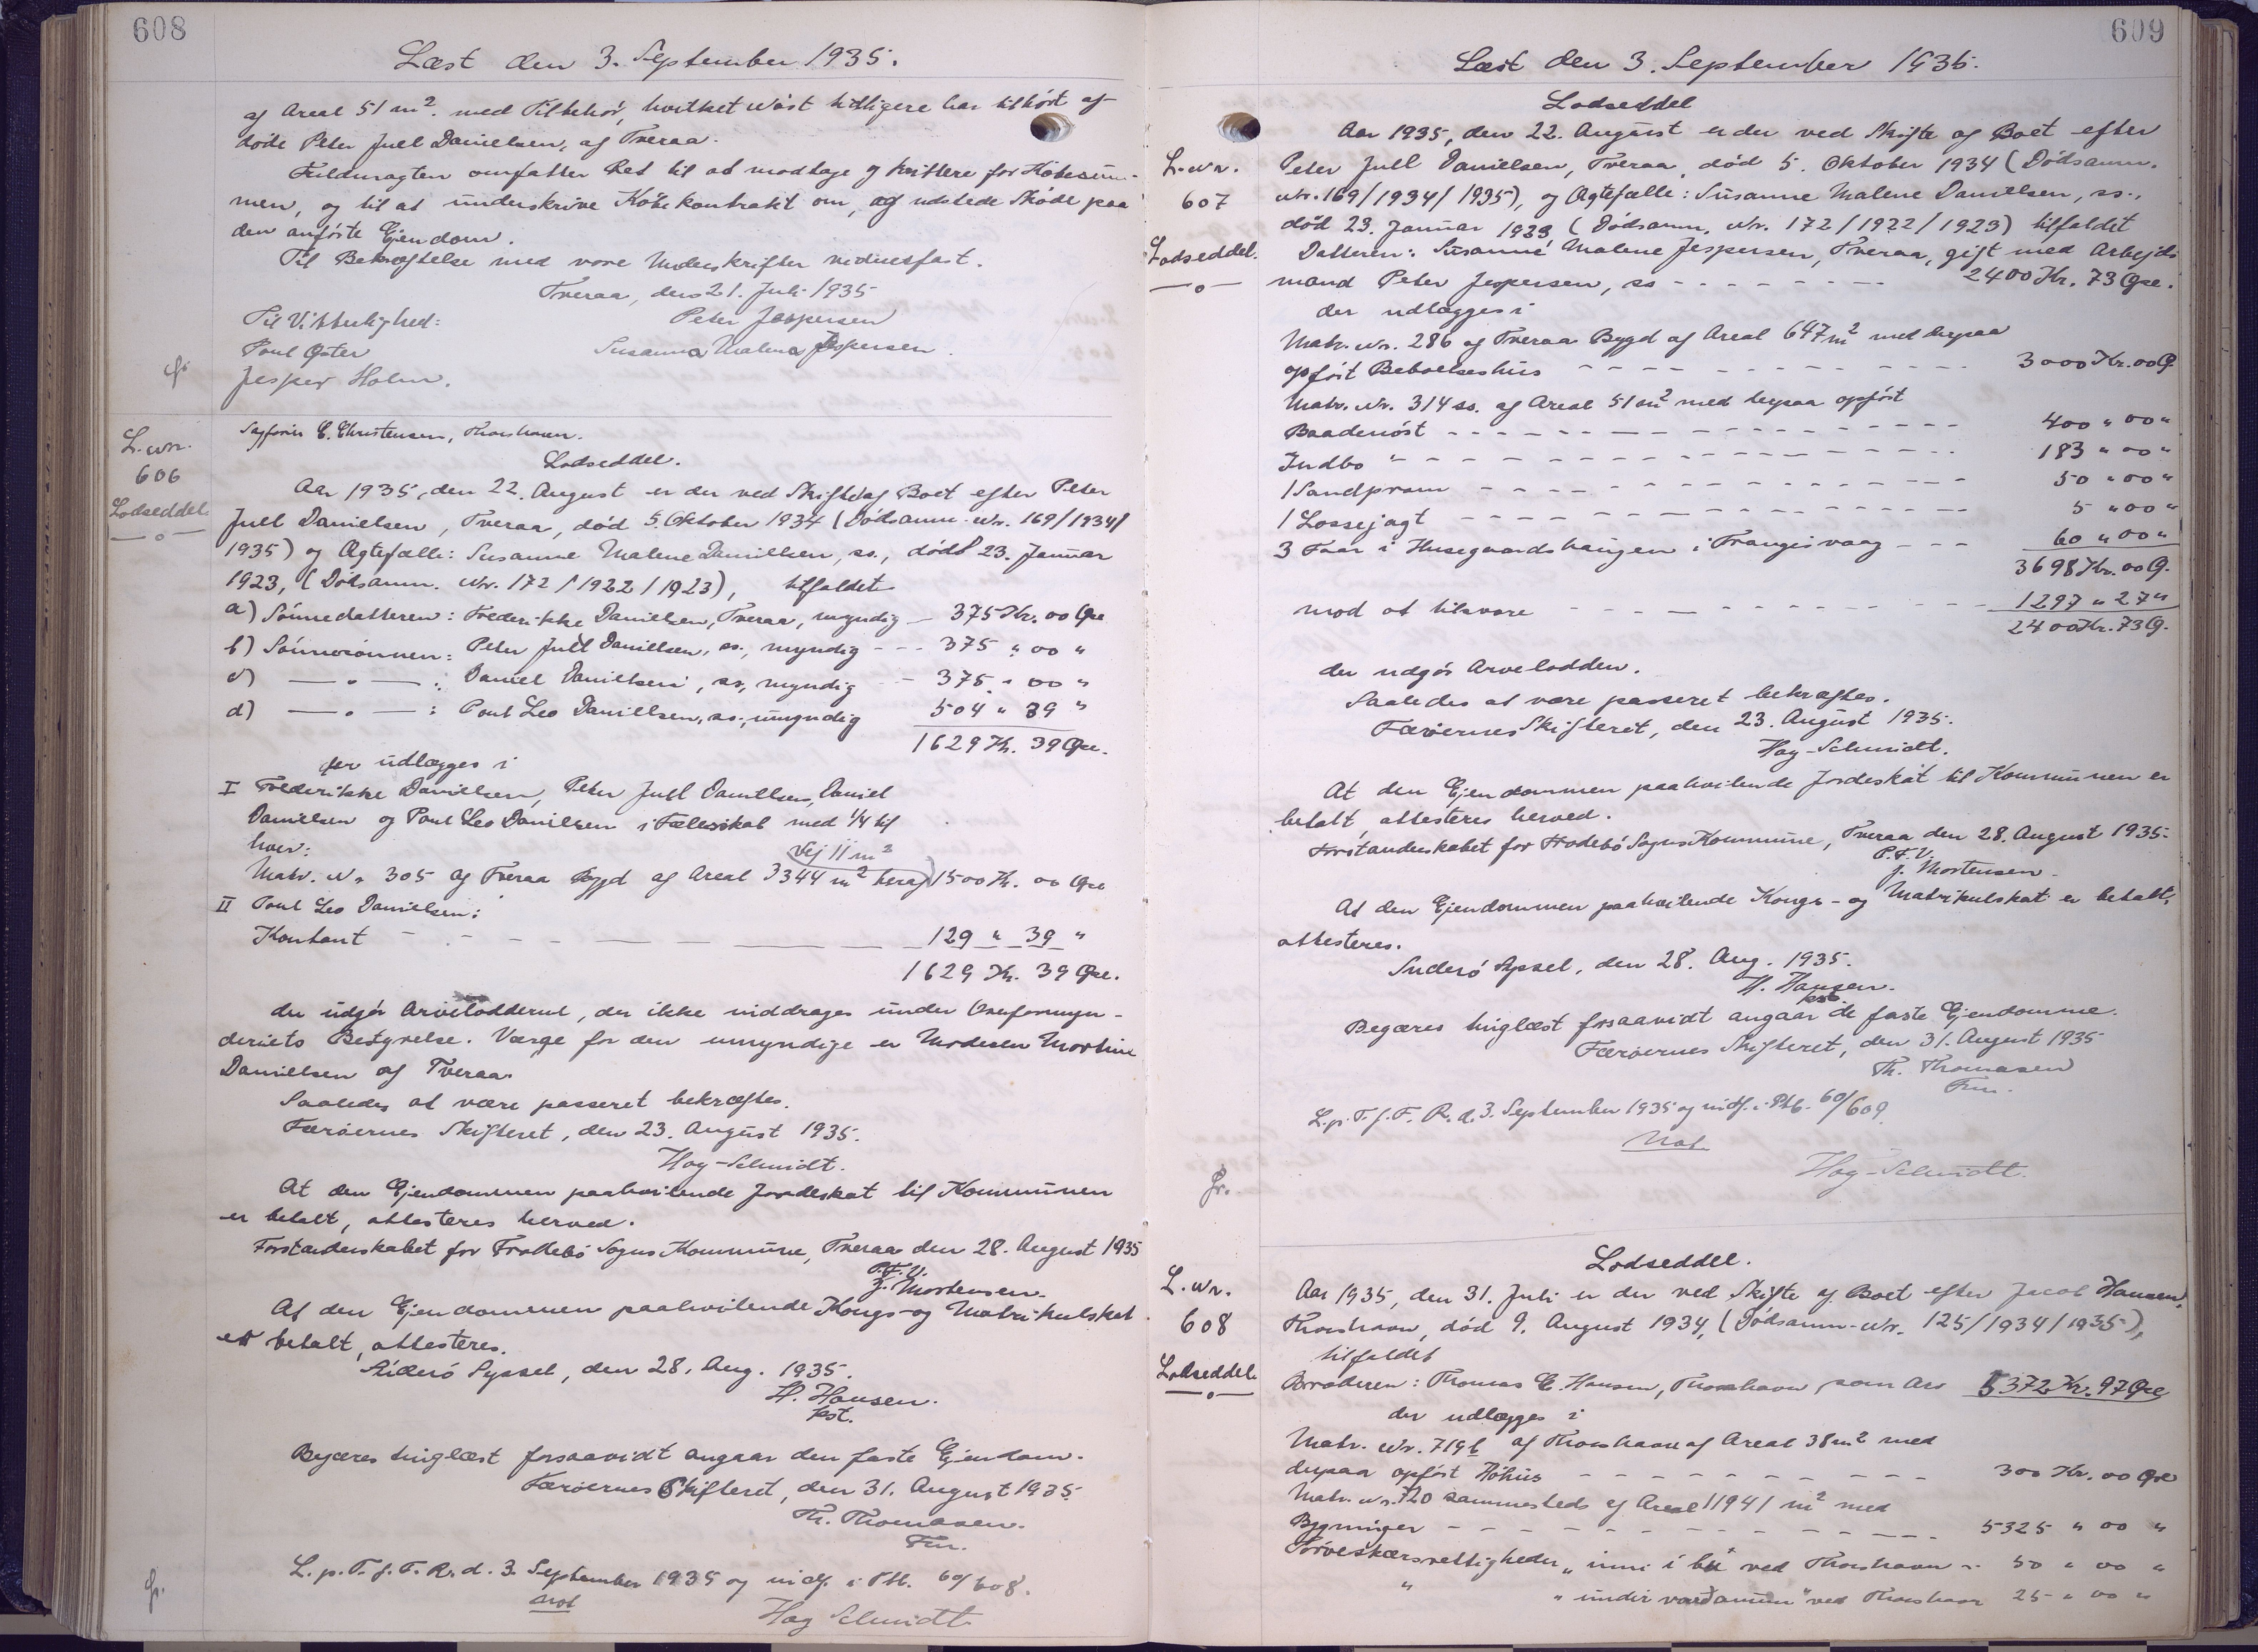 608
Læst den 3. September 1935.
af Areal 51 m². med Tilbehör, hvilket Nöst tidligere har tilhört af-
döde Peter Juel Danielsen, af Tveraa.
Fuldmagten omfatter Ret til at modtage og kvittere for Köbesum-
men, og til at underskrive Köbekontrakt om, og udstede Sköde paa
den anförte Ejendom.
Til Bekræftelse med vore Underskrifter vidnesfast.
Tveraa, den 21. Juli 1935
Til Vitterlighed: Peter Jespersen
Poul Øster Susanna Malena Jespersen.
Jesper Holm.
L. Nr. 606 Lodseddel.
Sagförer C. Christensen, Thorshavn.
Lodseddel.
Aar 1935, den 22. August er der ved Skifte af Boet efter Peter
Juell Danielsen, Tveraa, död 5. Oktober 1934 (Dödsanm. Nr. 169/1934/
1935) og Ægtefælle: Susanne Malene Danielsen, ss., död 23. Januar
1923, (Dödsanm. Nr. 172/1922/1923), tilfaldet
a) Sönnedatteren: Frederikke Danielsen, Tveraa, myndig — 375 Kr. 00 Øre
b) Sönnesönnen: Peter Jull Danielsen, ss., myndig - - - 375 " 00 "
c) — " — : Daniel Danielsen, ss., myndig - 375 " 00 "
d) — " — : Poul Leo Danielsen, ss., umyndig 504 " 39 "
1629 Kr. 39 Øre.
der udlægges i
I Frederikke Danielsen, Peter Juell Danielsen, Daniel
Danielsen og Poul Leo Danielsen i Fællesskab med 1/4 til
hver:
Vej 11 m²
Matr. Nr. 305 af Tveraa Bygd af Areal 3344 m² heraf 1500 Kr. 00 Øre
II Poul Leo Danielsen:
Kontant - - - - - 129 " 39 "
1629 Kr. 39 Øre.
der udgör Arvelodderne, der ikke inddrages under Overformyn-
deriets Bestyrelse. Værge for den umyndige er Moderen Martine
Danielsen af Tveraa.
Saaledes at være passeret bekræftes.
Færöernes Skifteret, den 23. August 1935.
Hag-Schmidt.
At den Ejendommen paahvilende Jordeskat til Kommunen
er betalt, attesteres herved.
Forstanderskabet for Frodebö Sogns Kommune, Tveraa den 28. August 1935
P. F. V.
J. Mortensen.
At den Ejendommen paahvilende Kongs- og Matrikulskat
er betalt, attesteres.
Suderö Syssel, den 28. Aug. 1935.
H. Hansen.
kst.
Begæres tinglæst forsaavidt angaar den faste Ejendom.
Færöernes Skifteret, den 31. August 1935.
Th. Thomasen.
Fm.
L. p. T. f. F. R. d. 3. September 1935 og indf. i Ptb. 60/608.
Not
Hag Schmidt
609
Læst den 3. September 1935.
L. Nr. 607 Lodseddel.
Lodseddel
Aar 1935, den 22. August er der ved Skifte af Boet efter
Peter Jull Danielsen, Tveraa, död 5. Oktober 1934 (Dödsanm.
Nr. 169/1934/1935), og Ægtefælle: Susanne Malene Danielsen, ss.,
död 23. Januar 1923 (Dödsanm. Nr. 172/1922/1923) tilfaldet
Datteren: Susanne Malene Jespersen, Tveraa, gift med Arbejds
mand Peter Jespersen, ss - - - - - 2400 Kr. 73 Øre.
der udlægges i
Matr. Nr. 286 af Tveraa Bygd af Areal 647 m² med derpaa
opfört Beboelseshus - - - - - 3000 Kr. 00 Ø
Matr. Nr. 314 ss. af Areal 51 m² med derpaa opfört
Baadenöst - - - - - 400 " 00 "
Indbo " - - - - - 183 " 00 "
1 Sandpram - - - - - 50 " 00 "
1 Lossejagt - - - - - 5 " 00 "
3 Faar i Husegaardshaugen i Trangisvaag - - - 60 " 00 "
3698 Kr. 00 Ø.
mod at tilsvare - - - - - 1297 " 27 "
2400 Kr. 73 Ø.
der udgör Arvelodden.
Saaledes at være passeret bekræftes.
Færöernes Skifteret, den 23. August 1935.
Hag-Schmidt.
At den Ejendommen paahvilende Jordeskat til Kommunen er
betalt, attesteres herved.
Forstanderskabet for Frodebö Sogns Kommune, Tveraa den 28. August 1935.
P. F. V.
J. Mortensen.
At den Ejendommen paahvilende Kongs- og Matrikulskat er betalt,
attesteres.
Suderö Syssel, den 28. Aug. 1935.
H. Hansen.
kst.
Begæres tinglæst forsaavidt angaar de faste Ejendomme.
Færöernes Skifteret, den 31. August 1935
Th. Thomasen
Fm.
L. p. T. f. F. R. d. 3. September 1935 og indf. i Ptb. 60/609.
Not.
Hag-Schmidt.
L. Nr. 608 Lodseddel.
Lodseddel.
Aar 1935, den 31. Juli er der ved Skifte af Boet efter Jacob Hansen,
Thorshavn, död 9. August 1934, (Dödsanm. Nr. 125/1934/1935),
tilfaldet
Broderen: Thomas E. Hansen, Thorshavn som Arv 5372 Kr. 97 Øre
der udlægges i
Matr. Nr. 719b af Thorshavn af Areal 38 m² med
derpaa opfört Höhus - - - - - 300 Kr. 00 Øre
Matr. Nr. 720 sammesteds af Areal 11941 m² med
Bygninger - - - - - 5325 " 00 "
Törveskærsrettigheder "inni í bø" ved Thorshavn - 50 " 00 "
" "undir vardanum" ved Thorshavn 25 " 00 "